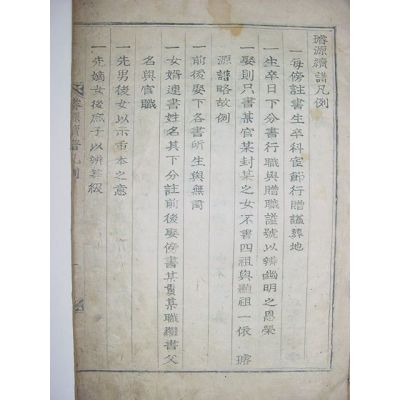 璿源續譜凡例
一每傍註書生卒科宦諡行贈諡葬地
一生卒日下分書行職與贈職諡號以辨幽明之恩榮
一娶則只書某官某封某之女不書四祖與顯祖一依璿
源譜略故例
一前後娶下各書所生與無育
一女婿連書姓名其下分註前後娶傍書某貫某職繼書父
名與官職
一先男後女以示重本之意
一先嫡女後庶子以辨等級
璿源續譜凡例